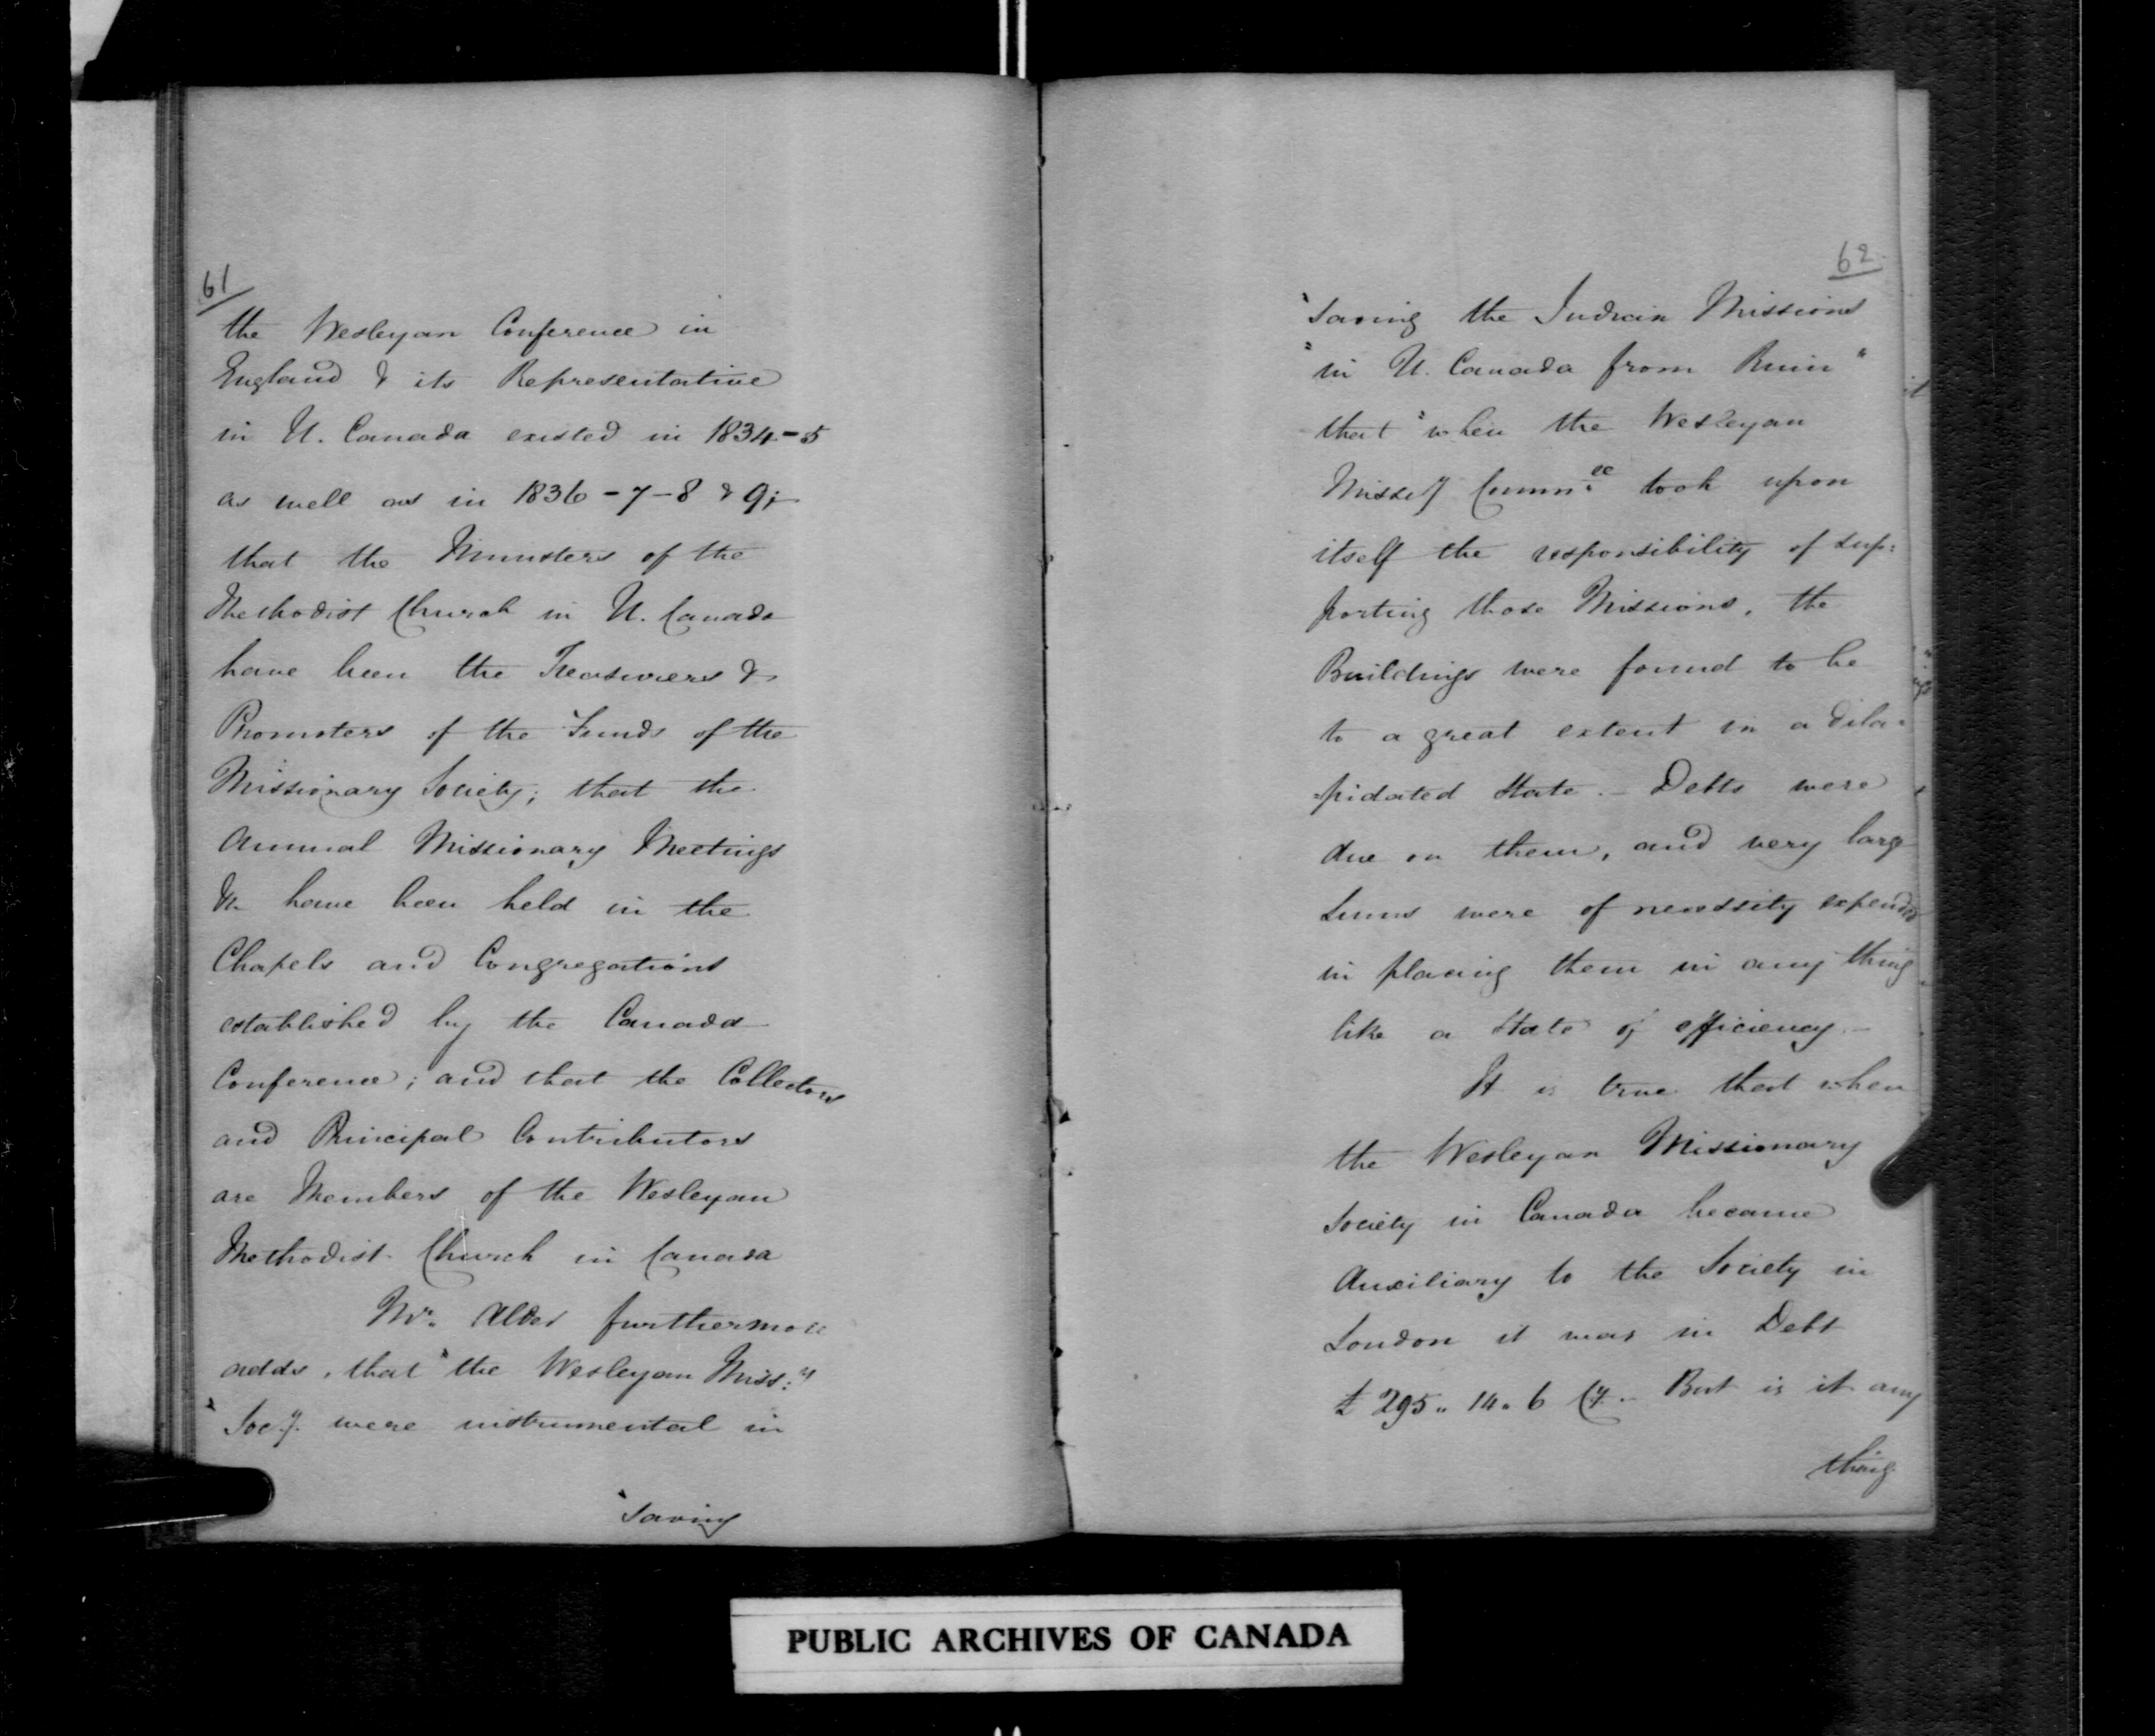 61
the Wesleyan Conference in
England & its Representative
in U. Canada existed in 1834-5
as well as in 1836-7-8 & 9;
that the Ministers of the
Methodist Church in U. Canada
have been the Treasurers &
Promoters of the Funds of the
Missionary Society; that the
Annual Missionary Meetings
&c have been held in the
Chapels and Congregations
established by the Canada
Conference; and that the Collectors
and Principal Contributors
are Members of the Wesleyan
Methodist Church in Canada
Mr. Alder furthermore
adds, that "the Wesleyan Miss:y
"Soc.y. were instrumental in
"Saving
62
"Saving the Indian Missions
"in U. Canada from Ruin"
that "when the Wesleyan
Missy Comm.ee took upon
itself the responsibility of sup:
porting those Missions, the
Buildings were found to be
to a great extent in a dila=
=pidated State. - Debts were
due on them, and very large
Sums were of necessity expended
in placing them in any thing
like a State of efficiency -
It is true that when
the Wesleyan Missionary
Society in Canada became
Auxiliary to the Society in
London it was in Debt
£ 295 .. 14 .. 6 Cy. - But is it any
thing
PUBLIC ARCHIVES OF CANADA